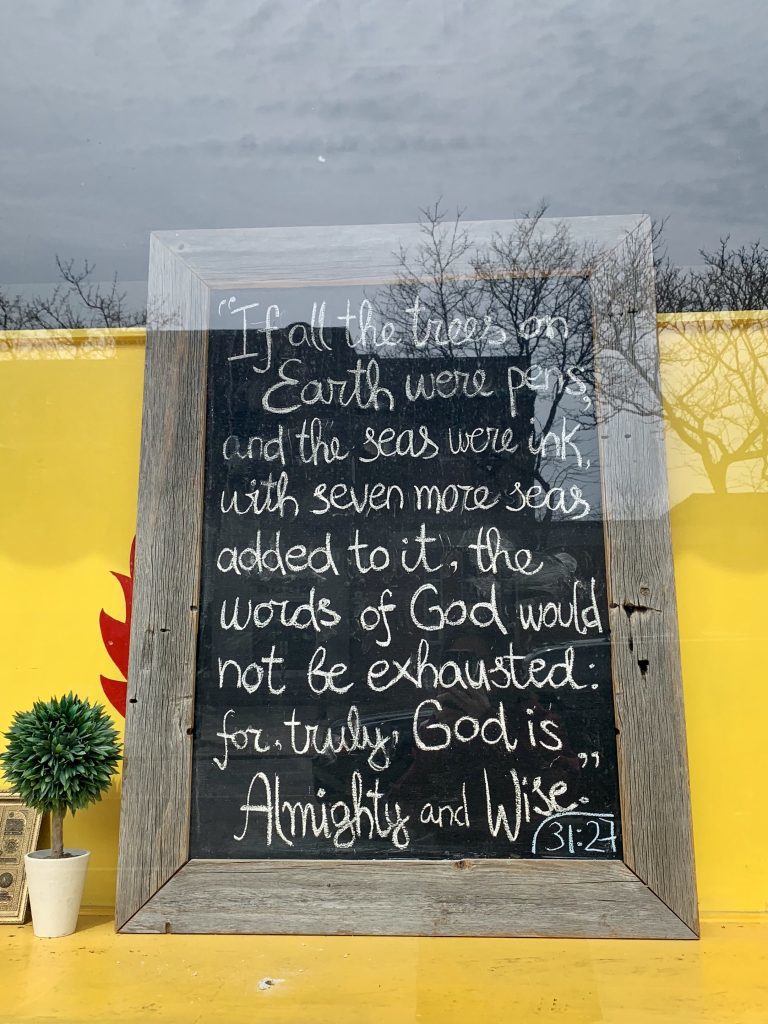 "If all the trees on
Earth were pens,
and the seas were ink,
with seven more seas
added to it, the
words of God would
not be exhausted:
for, truly, God is
Almighty and Wise."
31:27